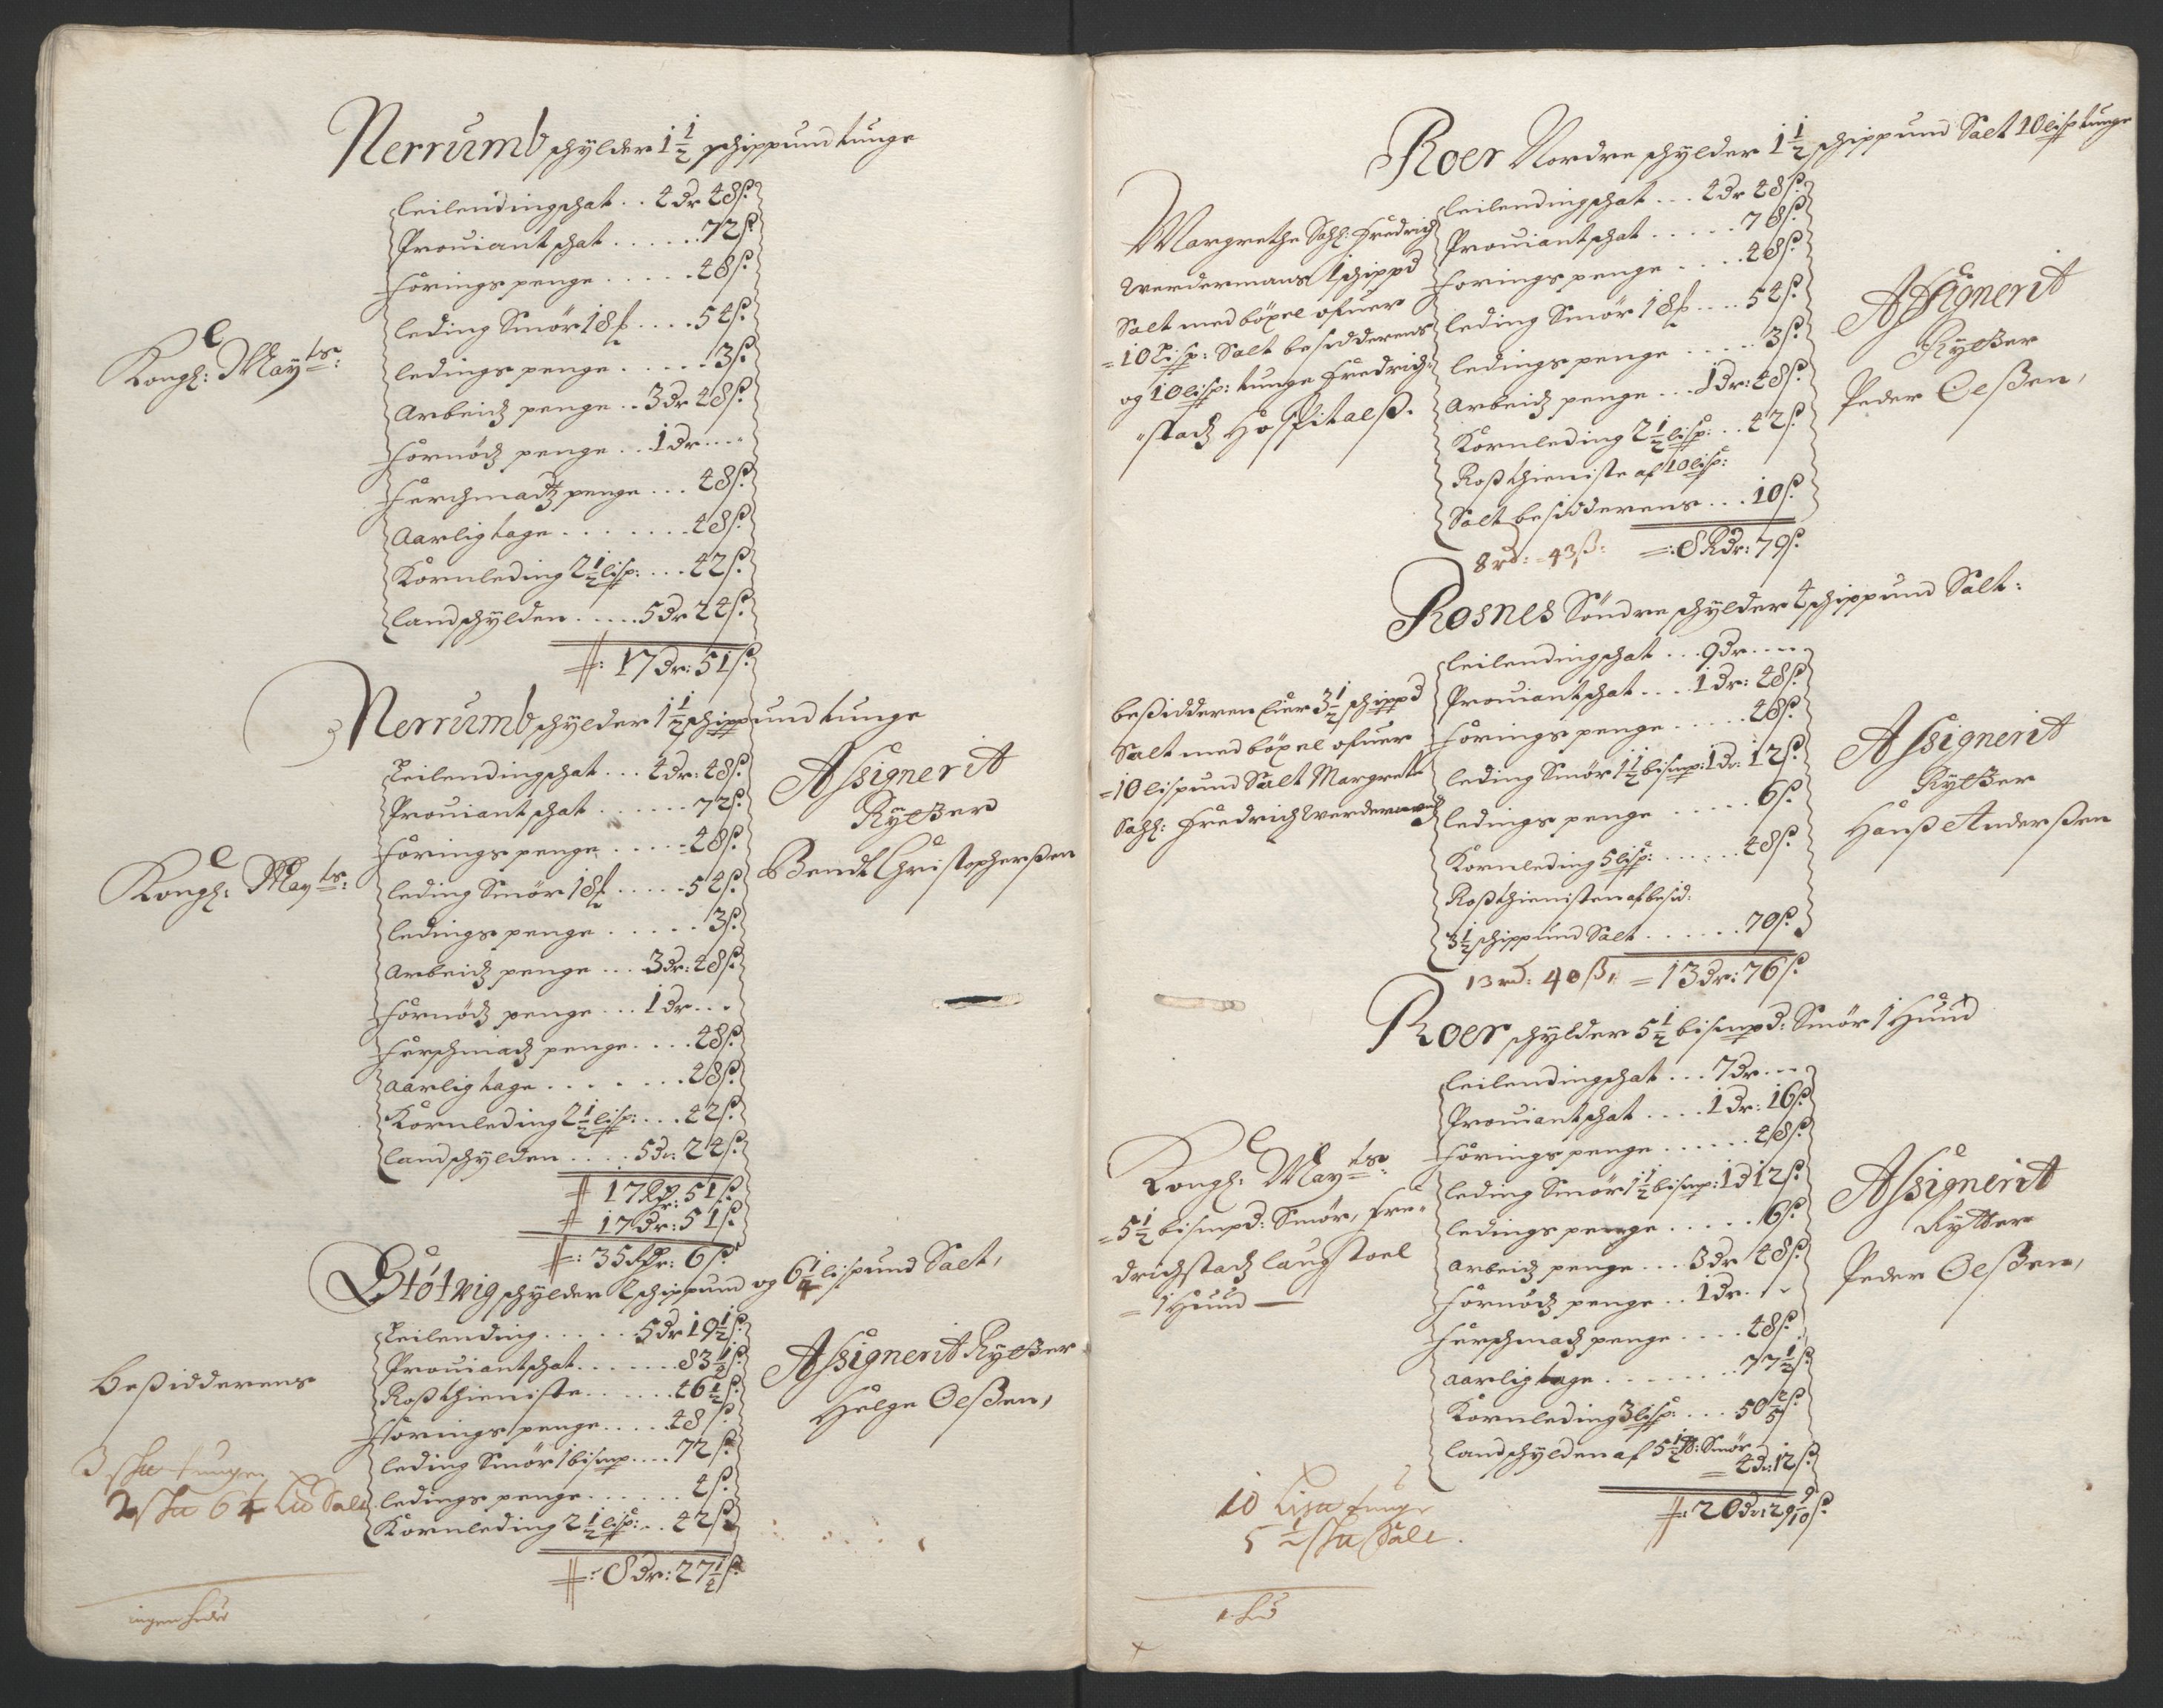 Nerrumb schylder 1 1/2 schippund tunge
Kongl: May:ts
leilendingschat . . 4 dr 48 ß
Prouiantschat . . . . . 72 ß
Foringspenge . . . . . 48 ß
leding Smör 18 ℔ . . . . 54 ß
ledingspenge . . . . . 3 ß
Arbeidz penge . . 3 dr 48 ß
Fornödz penge . . 1 dr . . . .
Ferschmadtz penge . . . 48 ß
Aarlig tage . . . . . . . . 48 ß
Kornleding 2 1/2 lisp: . . . 42 ß
landschylden . . . . . 5 dr 24 ß
17 dr: 51 ß
Nerrumb schylder 1 1/2 schippund tunge
Kongl: May:ts
Leilendingschat . . . 4 dr: 48 ß
Prouiantschat . . . . . . 72 ß
Foringspenge . . . . . 48 ß
leding Smör 18 ℔ . . . . . 54 ß
ledings penge . . . . . 3 ß
Arbeidz penge . . . 3 dr: 48 ß
Fornödz penge . . . 1 dr . . .
Ferschmadz penge . . . . 48 ß
Aarlig tage . . . . . . . 48 ß
Kornleding 2 1/2 lisp: . . . 42 ß
landschylden . . . . 5 dr: 24 ß
17 Rdr: 51 ß
17 dr: 51 ß
35 Rdr: 6 ß
Assignerit
Rytter
Bendt Christophersen
Stötvig schylder 2 schippund og 6 1/4 lispund Salt,
Beßidderens
Leilending . . . . . 5 dr 19 1/2 ß
Prouiantschat . . . . . . . 83 1/2 ß
Roßthieniste . . . . . . 46 1/2 ß
Foringspenge . . . . 48 ß
leding Smör 1 bismp . . . . 72 ß
ledings penge . . . . . . . 4 ß
Kornleding 2 1/2 lisp: . . 42 ß
8 dr: 27 1/2 ß
Assignerit Rytter
Helge Oelßen,
3 tunge
2 6 1/4 Salt
ingen hudr
Roer Nordre schylder 1 1/2 schippund Salt 10 lisp tunge
Margrethe Sahl: Fredrich
Werdermans 1 schippd
Salt med böxel ofuer
10 lisp: Salt besidderens
og 10 lisp: tunge Fredrich=
stadz Hospitalß.
leilendingschat . . . 4 dr 48 ß
Prouiantschat . . . . . 78 ß
Foringspenge . . . . 48 ß
leding Smör 18 ℔ . . . . 54 ß
ledings penge . . . . . 3 ß
Arbeidz penge . . . 1 dr: 48 ß
Kornleding 2 1/2 lisp: . . 42 ß
Roßthieniste af 10 lisp:
Salt besidderens . . . 10 ß
8 rd: 43 ß: =: 8 Rdr: 79 ß
Assignerit
Rytter
Peder Oelßen,
Rosnes Söndre schylder 4 schippund Salt:
beßidderen Eier 3 1/2 schippd
Salt med böxel ofuer
10 lispund Salt Margrete
Sahl: Fredrich Werdermandz
leilendingschat . . . 9 dr . . . .
Prouiantschat . . . . 1 dr: 48 ß
Foringspenge . . . . . 48 ß
leding Smör 1 1/2 bismp: 1 dr: 12 ß
ledings penge . . . . . 6 ß
Kornleding 5 lisp: . . . . . . 48 ß
Roßthienisten af besid:
3 1/2 schippund Salt . . . . . . 70 ß
13 rd: 40 ß: = 13 dr: 76 ß
Assignerit
Rytter
Hanß Anderßen
Roer schylder 5 1/2 bismpd: Smör 1 Huud
Kongl: May:ts
5 1/2 bismpd: Smör, Fre=
drichstadz laugstoel
= 1 Huud —
leilendingschat . . . 7 dr . . . .
Prouiantschat . . . . 1 dr: 16 ß
Foringspenge . . . . . . 48 ß
leding Smör 1 1/2 bismp: 1 d 12 ß
ledings penge . . . . . 6 ß
Arbeidz penge . . . 3 dr 48 ß
Fornödz penge . . 1 dr . . .
Ferschmadz penge . . . . 48 ß
Aarlig tage . . . . . . . 77 1/2 ß
Kornleding 3 lisp: . . . 50 2/5 ß
landschylden af 5 1/2 ℔: Smör
= 4 dr: 12 ß
20 dr: 29 9/10 ß
Assignerit
Rytter
Peder Oelßen,
10 tunge
5 1/2 Salt